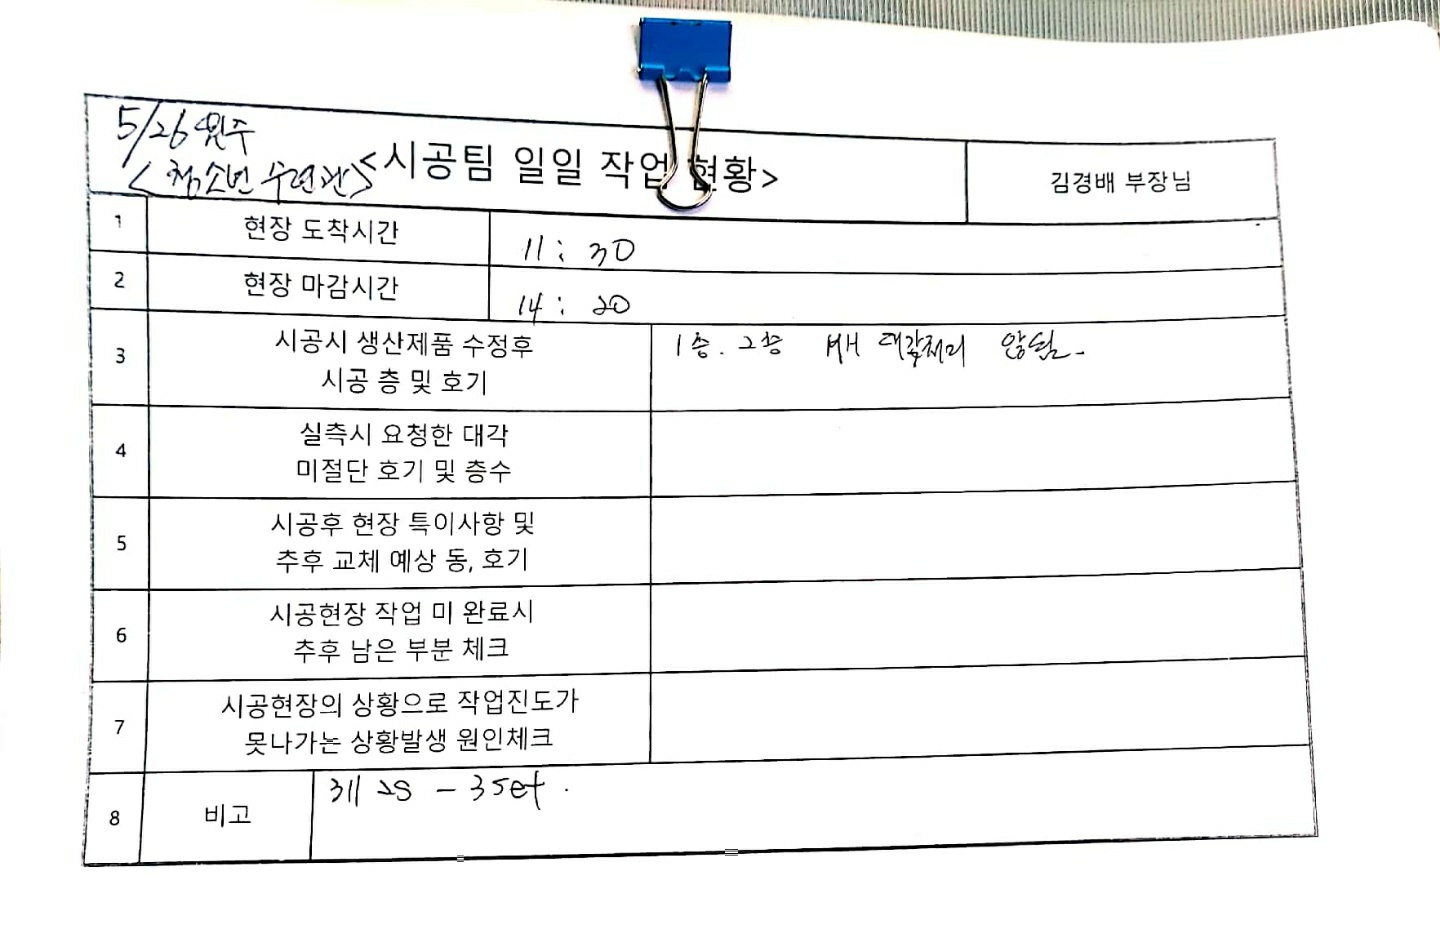 5/26 원주
<청소년 수련관>
<시공팀 일일 작업 현황>
김경배 부장님
1 현장 도착시간 11:30
2 현장 마감시간 14:20
3 시공시 생산제품 수정후
시공 층 및 호기
1층. 2층 대각처리 않됨.
4 실측시 요청한 대각
미절단 호기 및 층수
5 시공후 현장 특이사항 및
추후 교체 예상 동, 호기
6 시공현장 작업 미 완료시
추후 남은 부분 체크
7 시공현장의 상황으로 작업진도가
못나가는 상황발생 원인체크
8 비고
- 3set.